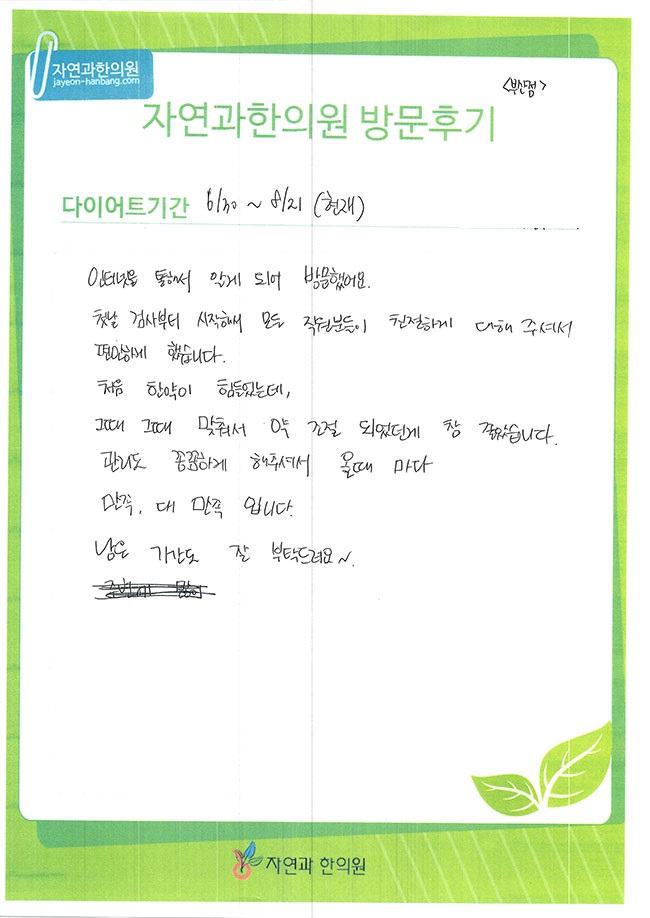 자연과한의원
jayeon-hanbang.com
<부산점>
자연과한의원 방문후기
다이어트기간 6/30 ~ 8/21 (현재)
인터넷을 통해서 알게 되어 방문했어요.
첫날 검사부터 시작해서 모든 직원분들이 친절하게 대해 주셔서
편안하게 했습니다.
처음 한약이 힘들었는데,
그때 그때 맞춰서 약 조절 되었던게 참 좋았습니다.
관리도 꼼꼼하게 해주셔서 올때 마다
만족, 대 만족 입니다.
남은 기간도 잘 부탁드려요~.
자연과 한의원